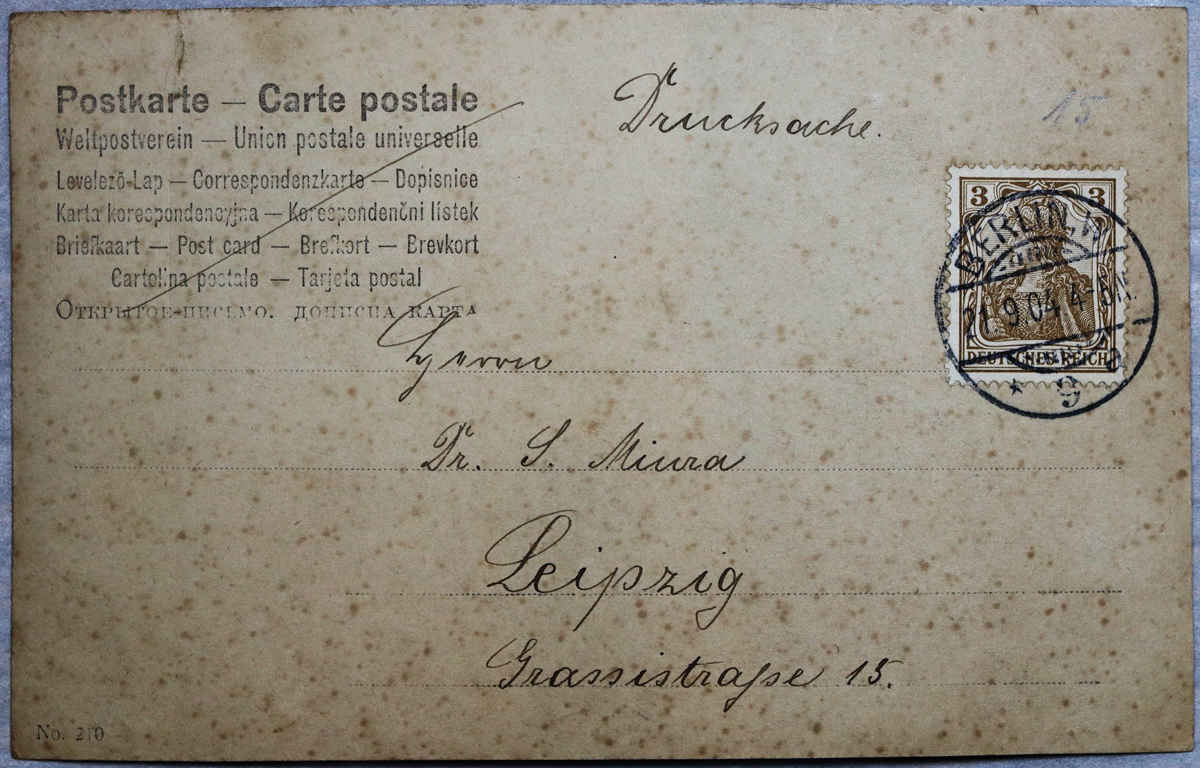 Postkarte — Carte postale
Weltpostverein — Union postale universelle
Levelező-Lap — Correspondenzkarte — Dopisnice
Karta korespondencyjna — Korespondenční lístek
Briefkaart — Post card — Brefkort — Brevkort
Cartolina postale — Tarjeta postal
Открытое письмо. дописна карта
Drucksache.
15
3 3
DEUTSCHES REICH
BERLIN W
21.9.04.4-5N.
* 9
Herrn
Dr. S. Miura
Leipzig
Grassistraße 15.
No. 210